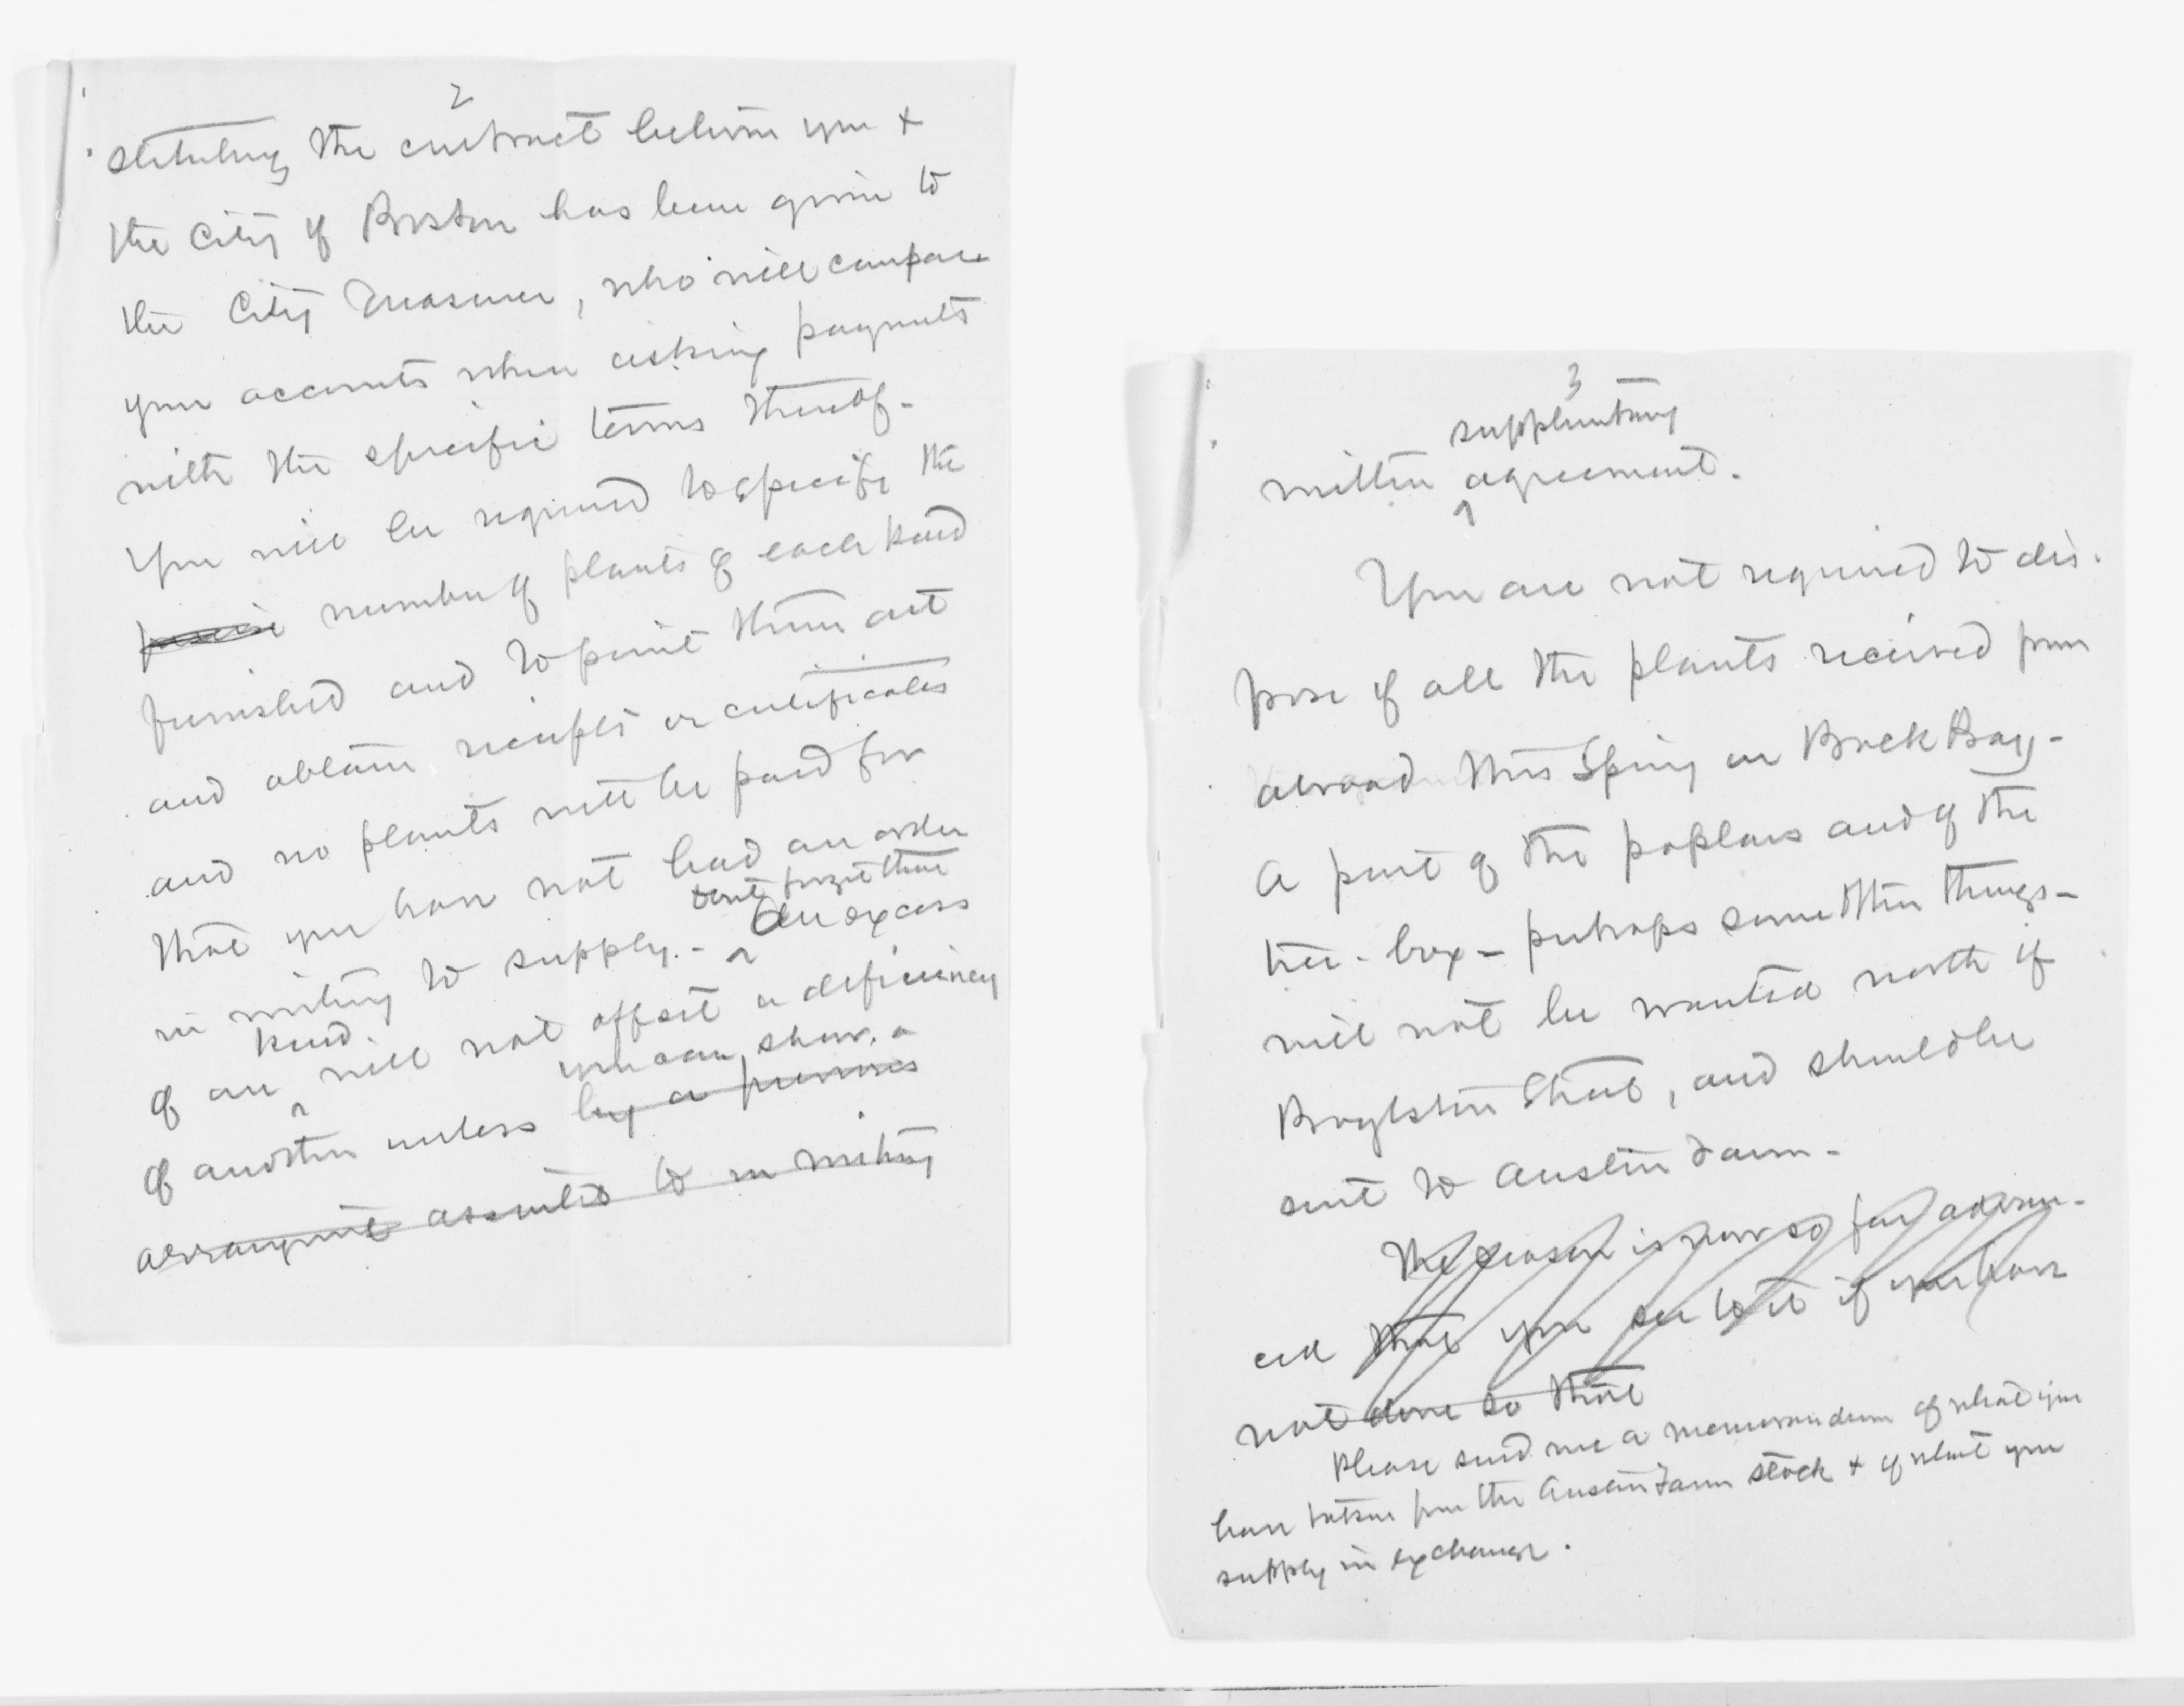 2
stituting the contract between you +
the City of Boston has been given to
the City Treasurer, who will compare
your accounts when asking payments
with the specific terms thereof.
You will be required to specify the
precise number of plants of each kind
furnished and to point them out
and obtain receipts or certificates
and no plants will be paid for
that you have not had an order
in writing to supply. - Don't forget that An excess
of one kind will not offset a deficiency
of another unless by a previous you can show a
arrangement assented to in writing
3
written supplementary agreement.
You are not required to dis-
pose of all the plants received from
abroad this Spring on Back Bay -
A part of the poplars and of the
tree-box - perhaps some other things -
will not be wanted north of
Boylston Street, and should be
sent to Austin Farm -
The season is now so far advan-
ced that you see to it if you have
not done so that
Please send me a memorandum of what you
have taken from the Austin Farm stock + of what you
supply in exchange.